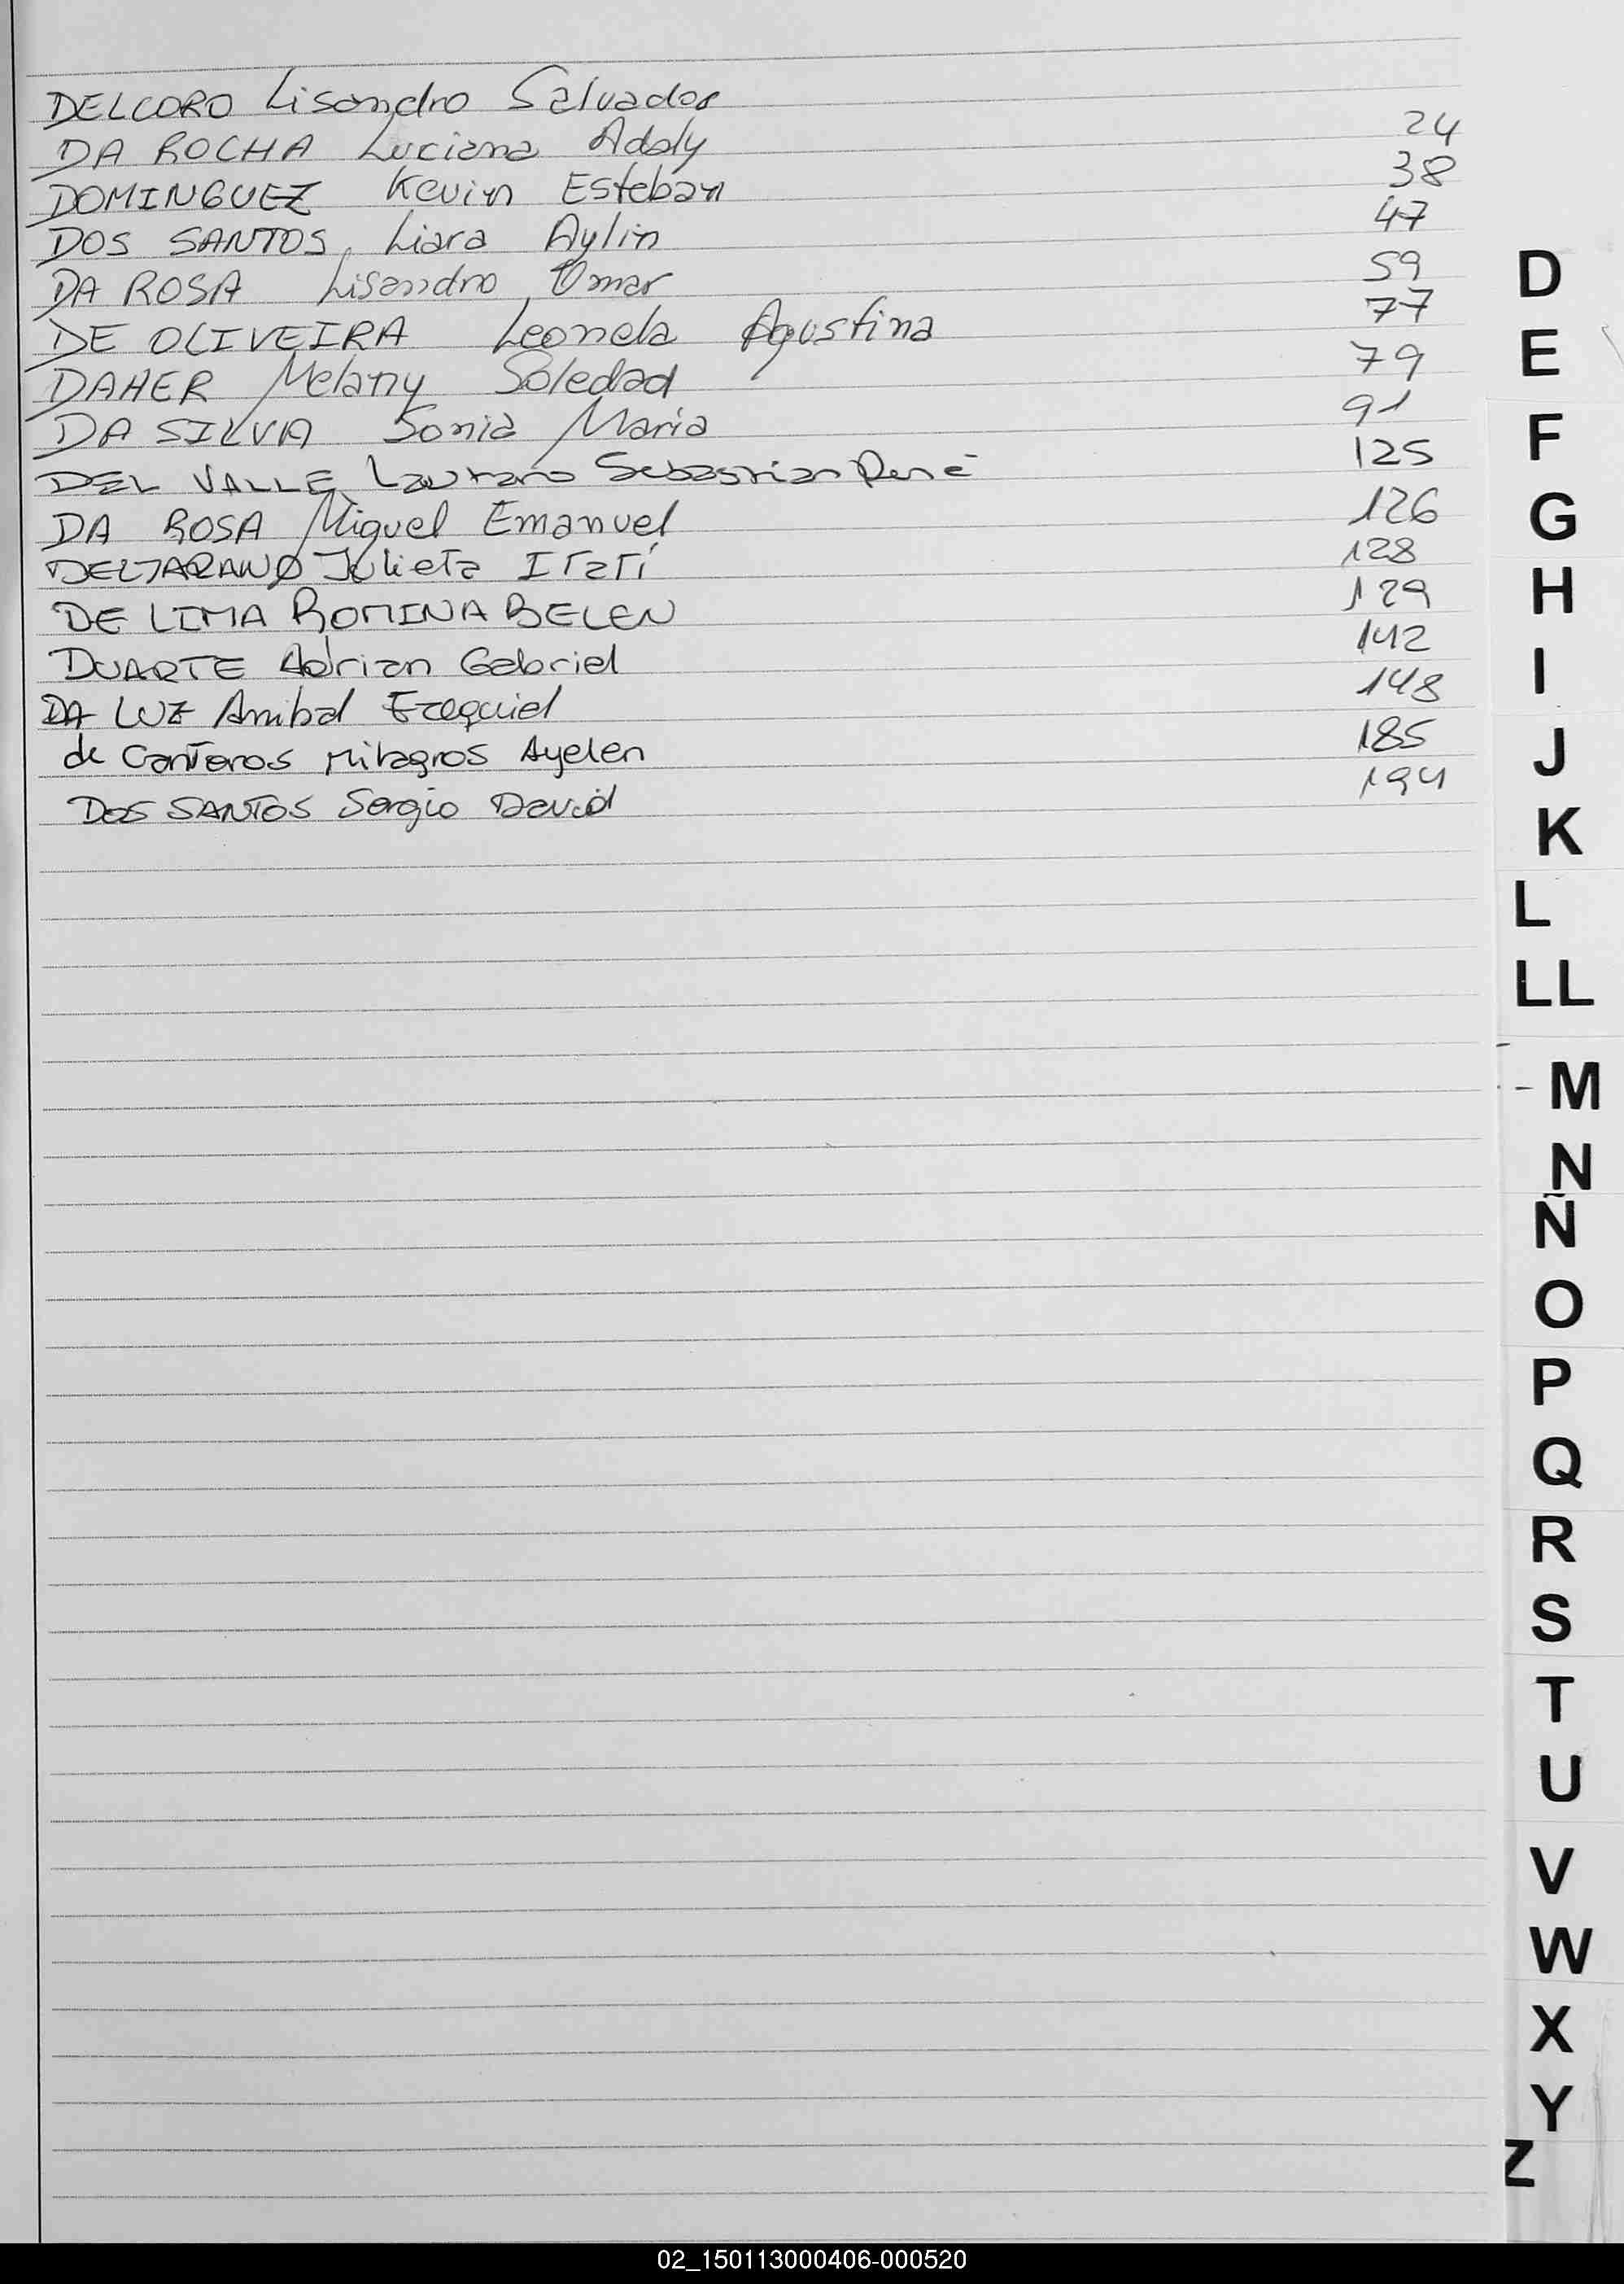 DELCORO Lisandro Salvador
DA ROCHA Luciana Adaly 24
DOMINGUEZ Kevin Esteban 38
DOS SANTOS, Liara Aylin 47
DA ROSA Lisandro Omar 59
DE OLIVEIRA Leonela Agustina 77
DAHER Melany Soledad 79
DA SILVA Sonia Maria 91
DEL VALLE Lautaro Sebastian René 125
DA ROSA Miguel Emanuel 126
Julieta Itatí 128
DE LIMA ROMINA BELEN 129
DUARTE Adrian Gabriel 142
DA LUZ Anibal Ezequiel 148
de Canteros Milagros Ayelen 185
DOS SANTOS Sergio David 194
D
E
F
G
H
I
J
K
L
LL
M
N
Ñ
O
P
Q
R
S
T
U
V
W
X
Y
Z
02_150113000406-000520